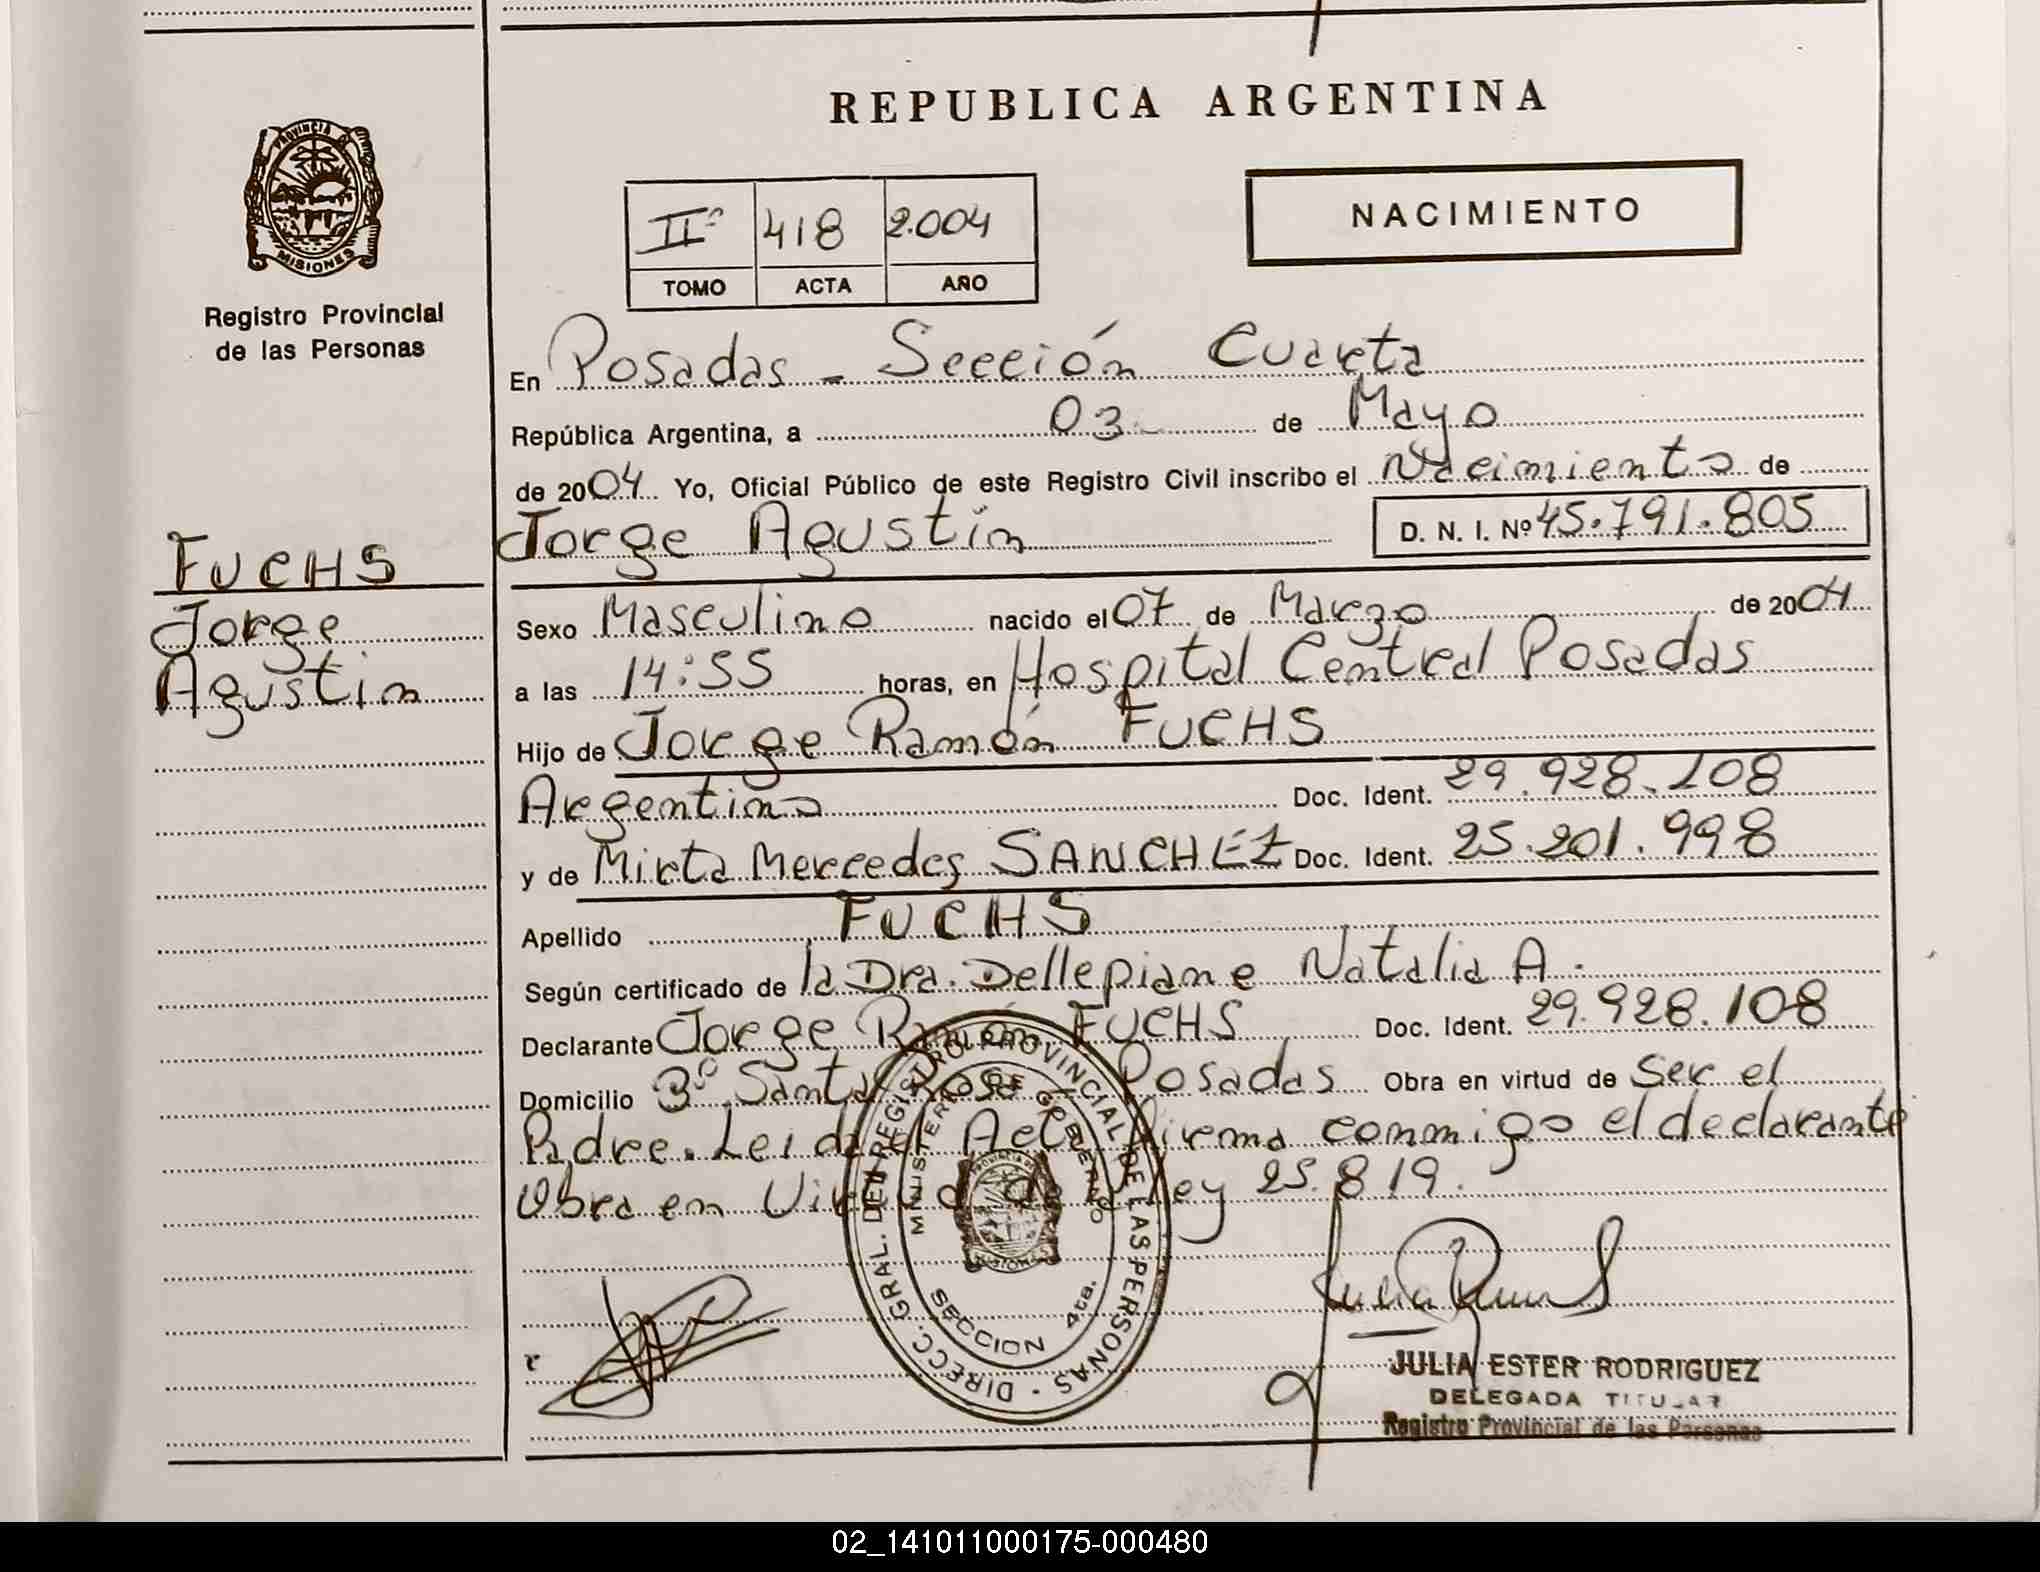 REPUBLICA ARGENTINA
PROVINCIA DE
MISIONES
Registro Provincial
de las Personas
IIº 418 2.004
TOMO ACTA AÑO
NACIMIENTO
En Posadas - Sección Cuarta
República Argentina, a 03 de Mayo
de 2004 Yo, Oficial Público de este Registro Civil inscribo el Nacimiento de
Jorge Agustín D. N. I. Nº 45.791.805
FUCHS
Jorge
Agustín
Sexo Masculino nacido el 07 de Marzo de 2004
a las 14:55 horas, en Hospital Central Posadas
Hijo de Jorge Ramón FUCHS
Argentino Doc. Ident. 29.928.108
y de Mirta Mercedes SANCHEZ Doc. Ident. 25.201.998
Apellido FUCHS
Según certificado de la Dra. Dellepiane Natalia A.
Declarante Jorge Ramón FUCHS Doc. Ident. 29.928.108
Domicilio 3º Santa Rosa Posadas Obra en virtud de Ser el
Padre. Leida el Acta Firma conmigo el declarante
Obra en Virtud de Ley 25.819.
DIRECC. GRAL. DEL REGISTRO PROVINCIAL DE LAS PERSONAS
MINISTERIO DE GOBIERNO
SECCION 4ta.
JULIA ESTER RODRIGUEZ
DELEGADA TITULAR
Registro Provincial de las Personas
02_141011000175-000480